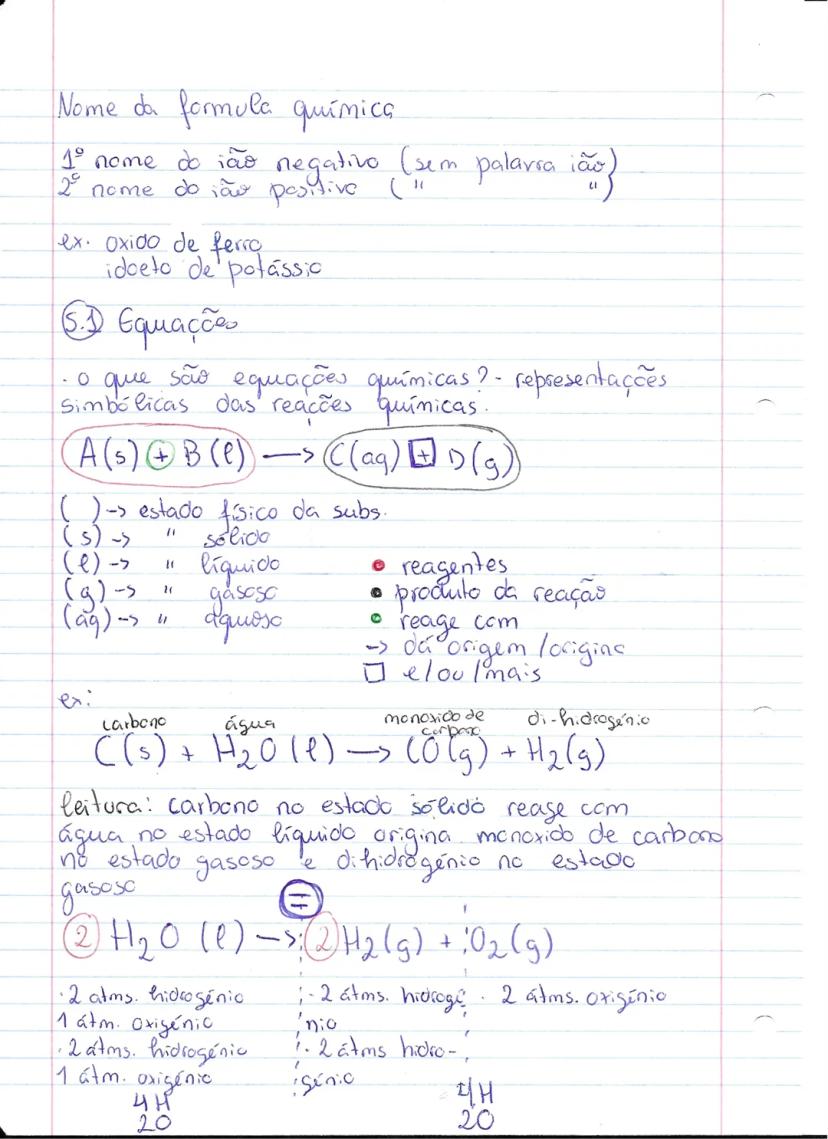 Nome da formula química
1º nome do ião negativo (sem palavra ião)
2º nome do ião positivo ( " " )
ex. oxido de ferro
idoeto de potássio
5.1 Equações
. o que são equações químicas? - representações
simbólicas das reações químicas.
A(s) + B(l) → C(aq) + D(g)
( ) → estado físico da subs.
(s) → " sólido
(l) → " líquido
(g) → " gasoso
(aq) → " aquoso
• reagentes
• produto da reação
• reage com
→ dá origem/origina
□ e/ou/mais
ex:
carbono água monoxido de carbono di-hidrogénio
C(s) + H2O(l) → CO(g) + H2(g)
leitura: carbono no estado sólido reage com
água no estado líquido origina monoxido de carbono
no estado gasoso e dihidrogénio no estado
gasoso
=
2 H2O (l) → 2 H2(g) + O2(g)
· 2 atms. hidrogénio
1 átm. oxigénio
· 2 átms. hidrogénio
1 átm. oxigénio
4H
2O
· 2 átms. hidrogé
nio
· 2 átms hidro-
génio
· 2 átms. oxigénio
4H
2O